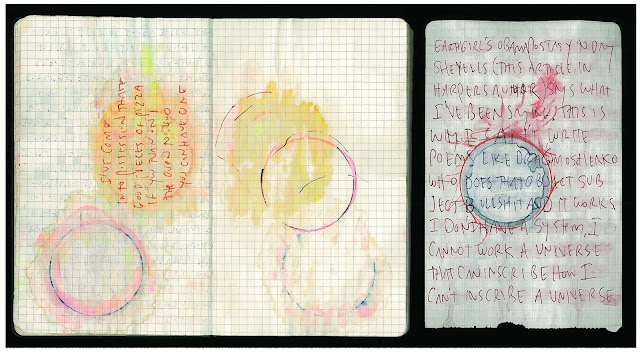 I'VE COME
INTO POSSESSION
GOOD PIECES OF PIZZA
IF YOU TURN ON
THE OVEN TO 400
YOU CAN HAVE ONE
EARTHGIRL'S
SHE YELLS (THIS ARTICLE IN
HARPERS IS WHAT
I'VE BEEN THIS IS
WHY I CAN'T WRITE
POEMS LIKE
WHO DOES THAT OBJECT SUB
JECT BULLSHIT AND IT WORKS
I DON'T HAVE A SYSTEM, I
CANNOT WORK A UNIVERSE
THAT CAN INSCRIBE HOW I
CAN'T INSCRIBE A UNIVERSE